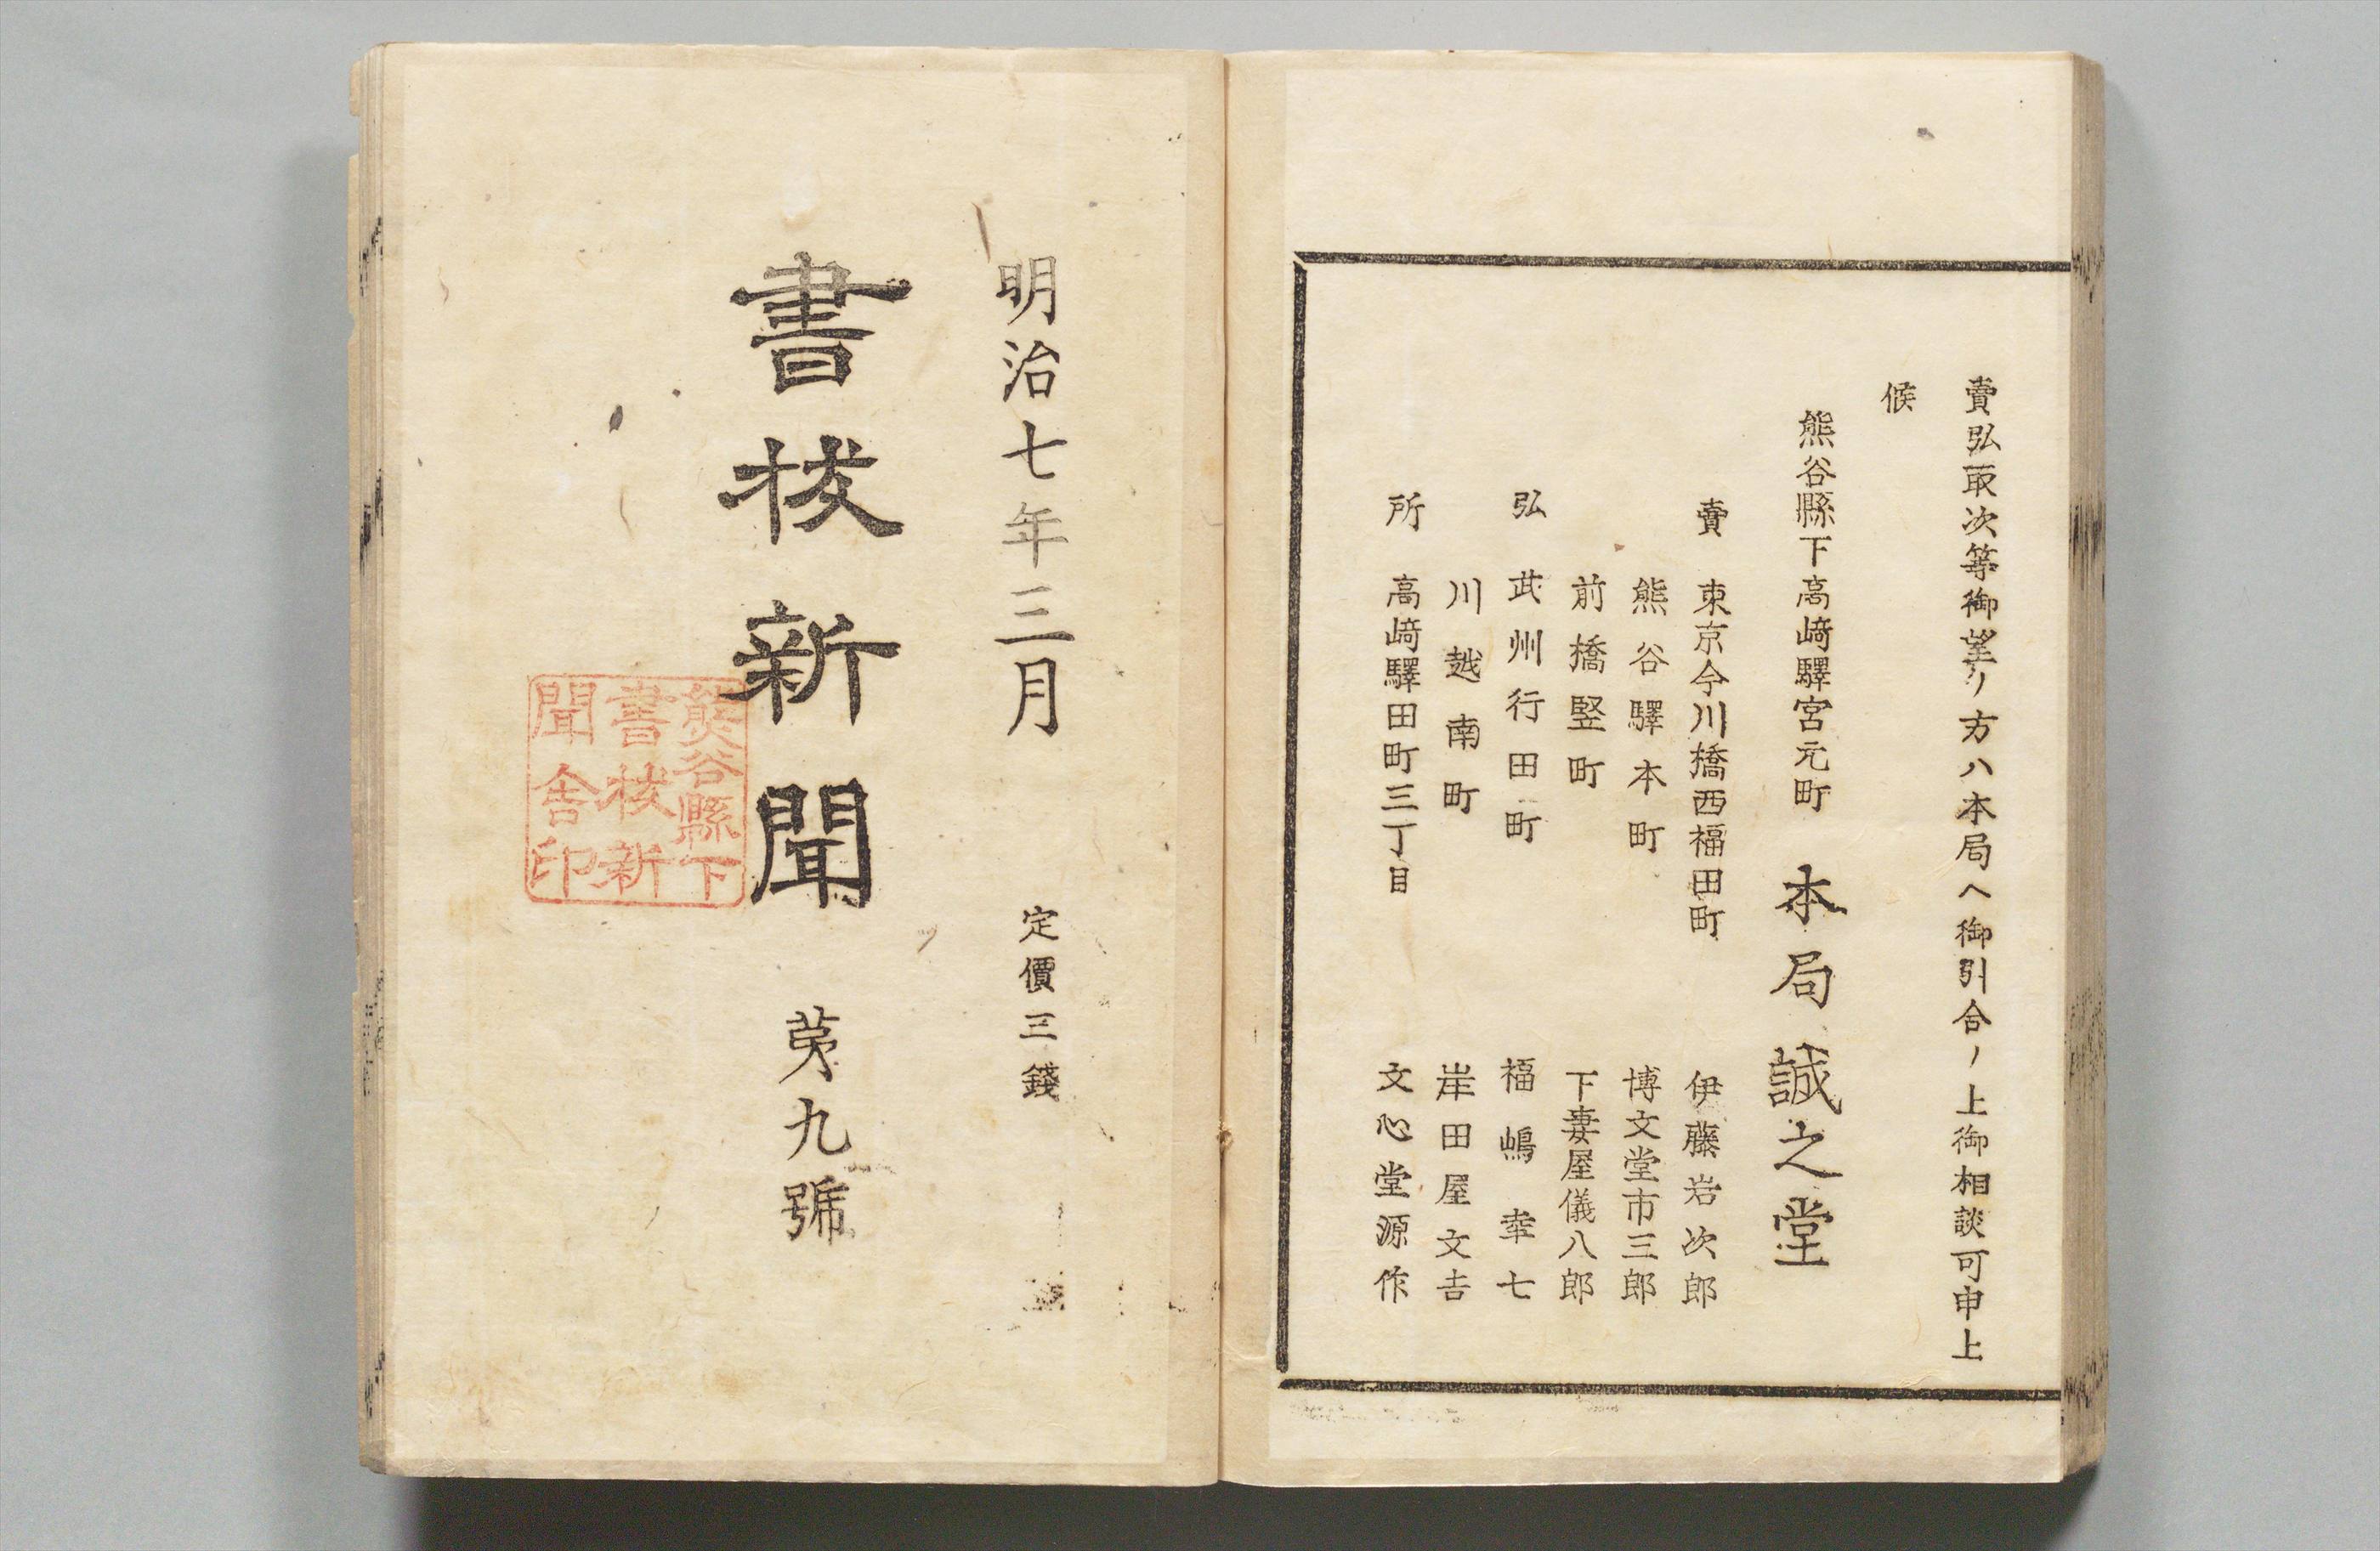 賣弘取次等御望ノ方ハ本局ヘ御引合ノ上御相談可申上
候
熊谷縣下高﨑驛宮元町 本局 誠之堂
賣 東京今川橋西福田町 伊藤岩次郎
熊谷驛本町 博文堂市三郎
前橋竪町 下妻屋儀八郎
弘 武州行田町 福嶋幸七
川越南町 岸田屋文吉
所 高﨑驛田町三丁目 文心堂源作
明治七年三月 定價三錢
書抜新聞 苐九號
熊谷縣下
書抜新
聞舎印